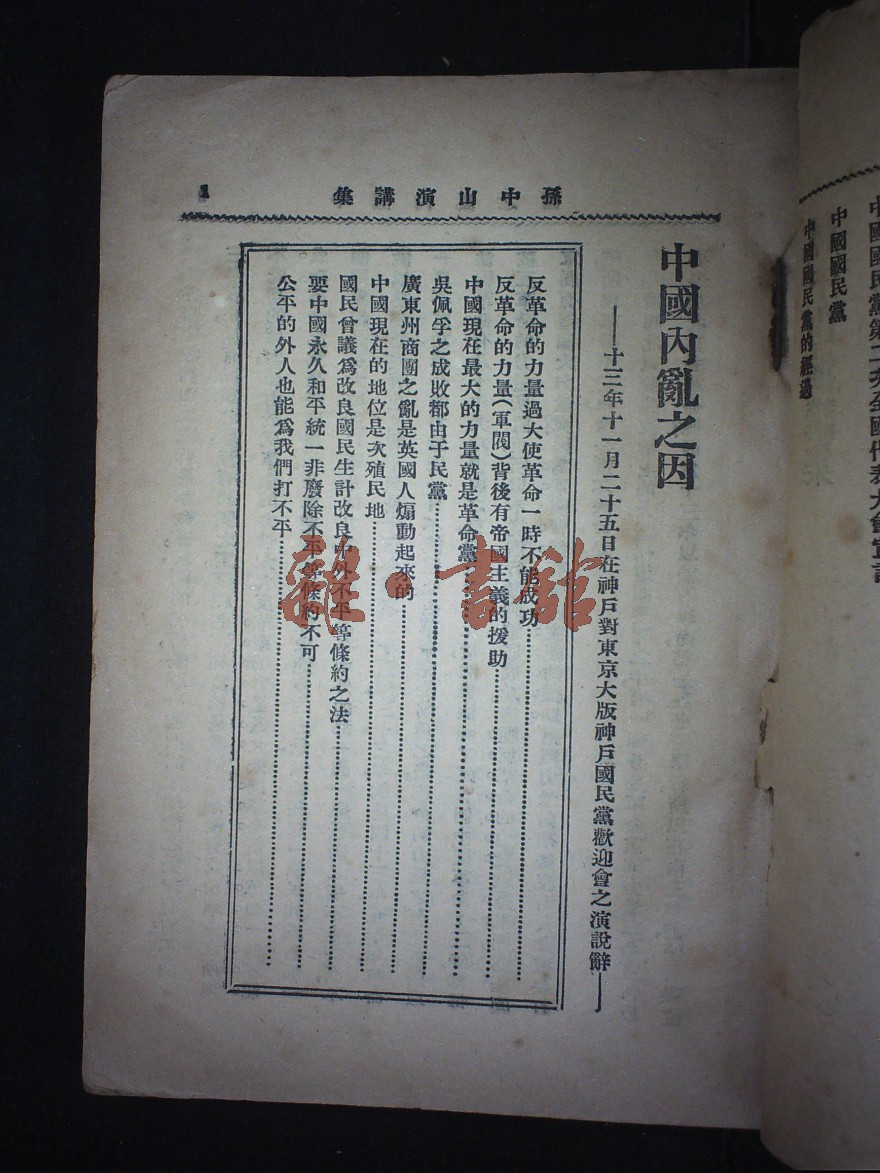 中國國民黨第二次全國代表大會宣言
中國國民黨
中國國民黨的經過
孫中山演講集
1
中國內亂之因
——十三年十一月二十五日在神戶對東京大版神戶國民黨歡迎會之演說辭——
反革命的力量過大使革命一時不能成功
反革命的力量(軍閥)背後有帝國主義的援助
中國現在最大的力量就是革命黨
吳佩孚之成敗都由于民黨
廣東州商團之亂是英國人煽動起來的
中國現在的地位是次殖民地
國民會議爲改良國民生計改良中外不平等條約之法
要中國永久和平統一非廢除不平等條約不可
公平的外人也能爲我們打不平
雜·書館